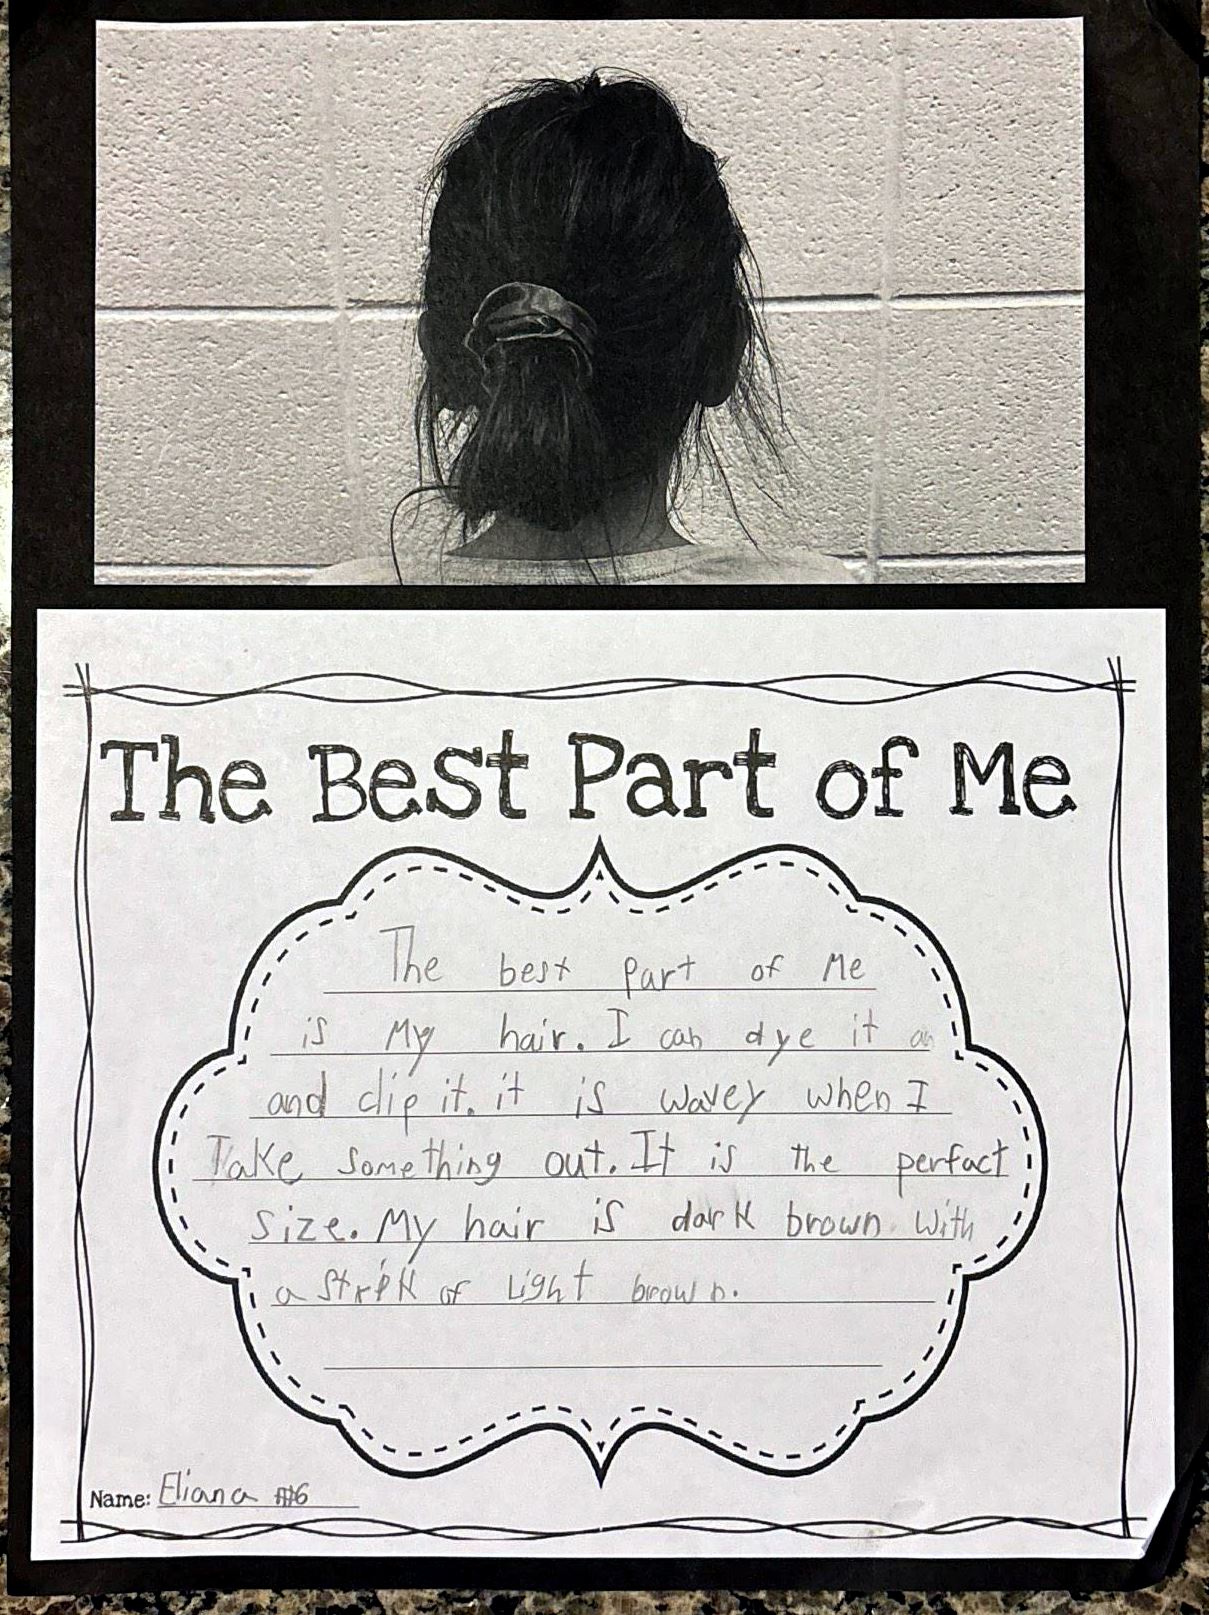 The Best Part of Me
The best part of Me
is My hair. I can dye it an
and clip it. it is wavey when I
Take something out. It is the perfact
size. My hair is dark brown with
a strik of Light brown.
Name: Eliana #6